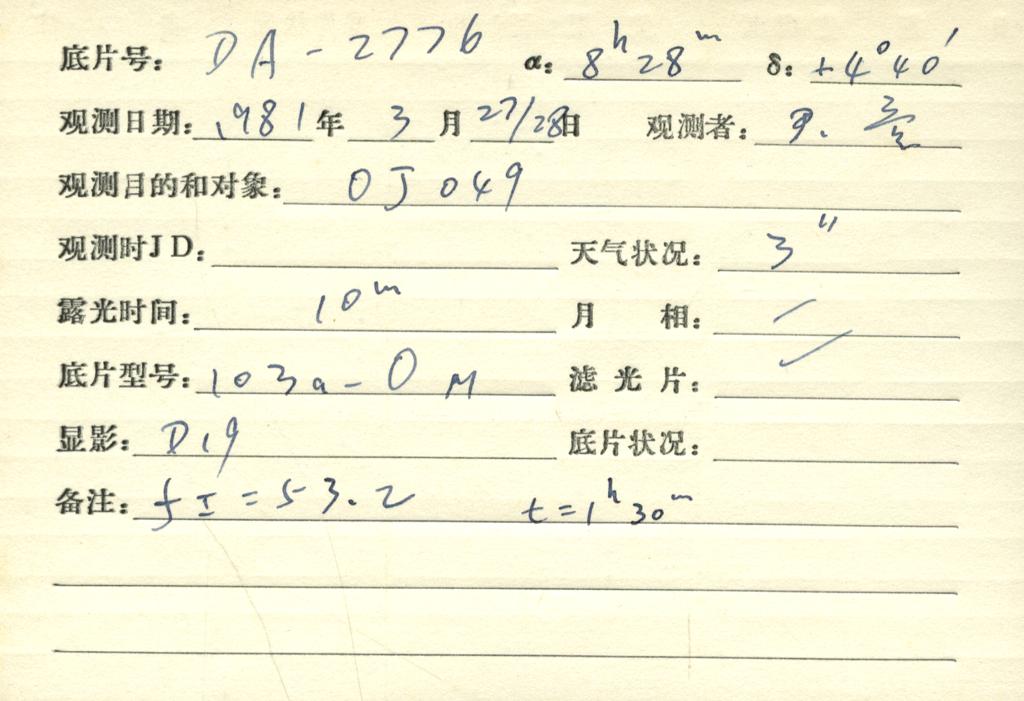 底片号: DA-2776 α: 8ʰ28ᵐ δ: +4°40′
观测日期: 1981年 3月 27/28日 观测者:
观测目的和对象: OJ 049
观测时JD: 天气状况: 3″
露光时间: 10ᵐ 月 相:
底片型号: 103a-O M 滤光片:
显影: D19 底片状况:
备注: fI=53.2 t=1ʰ30ᵐ